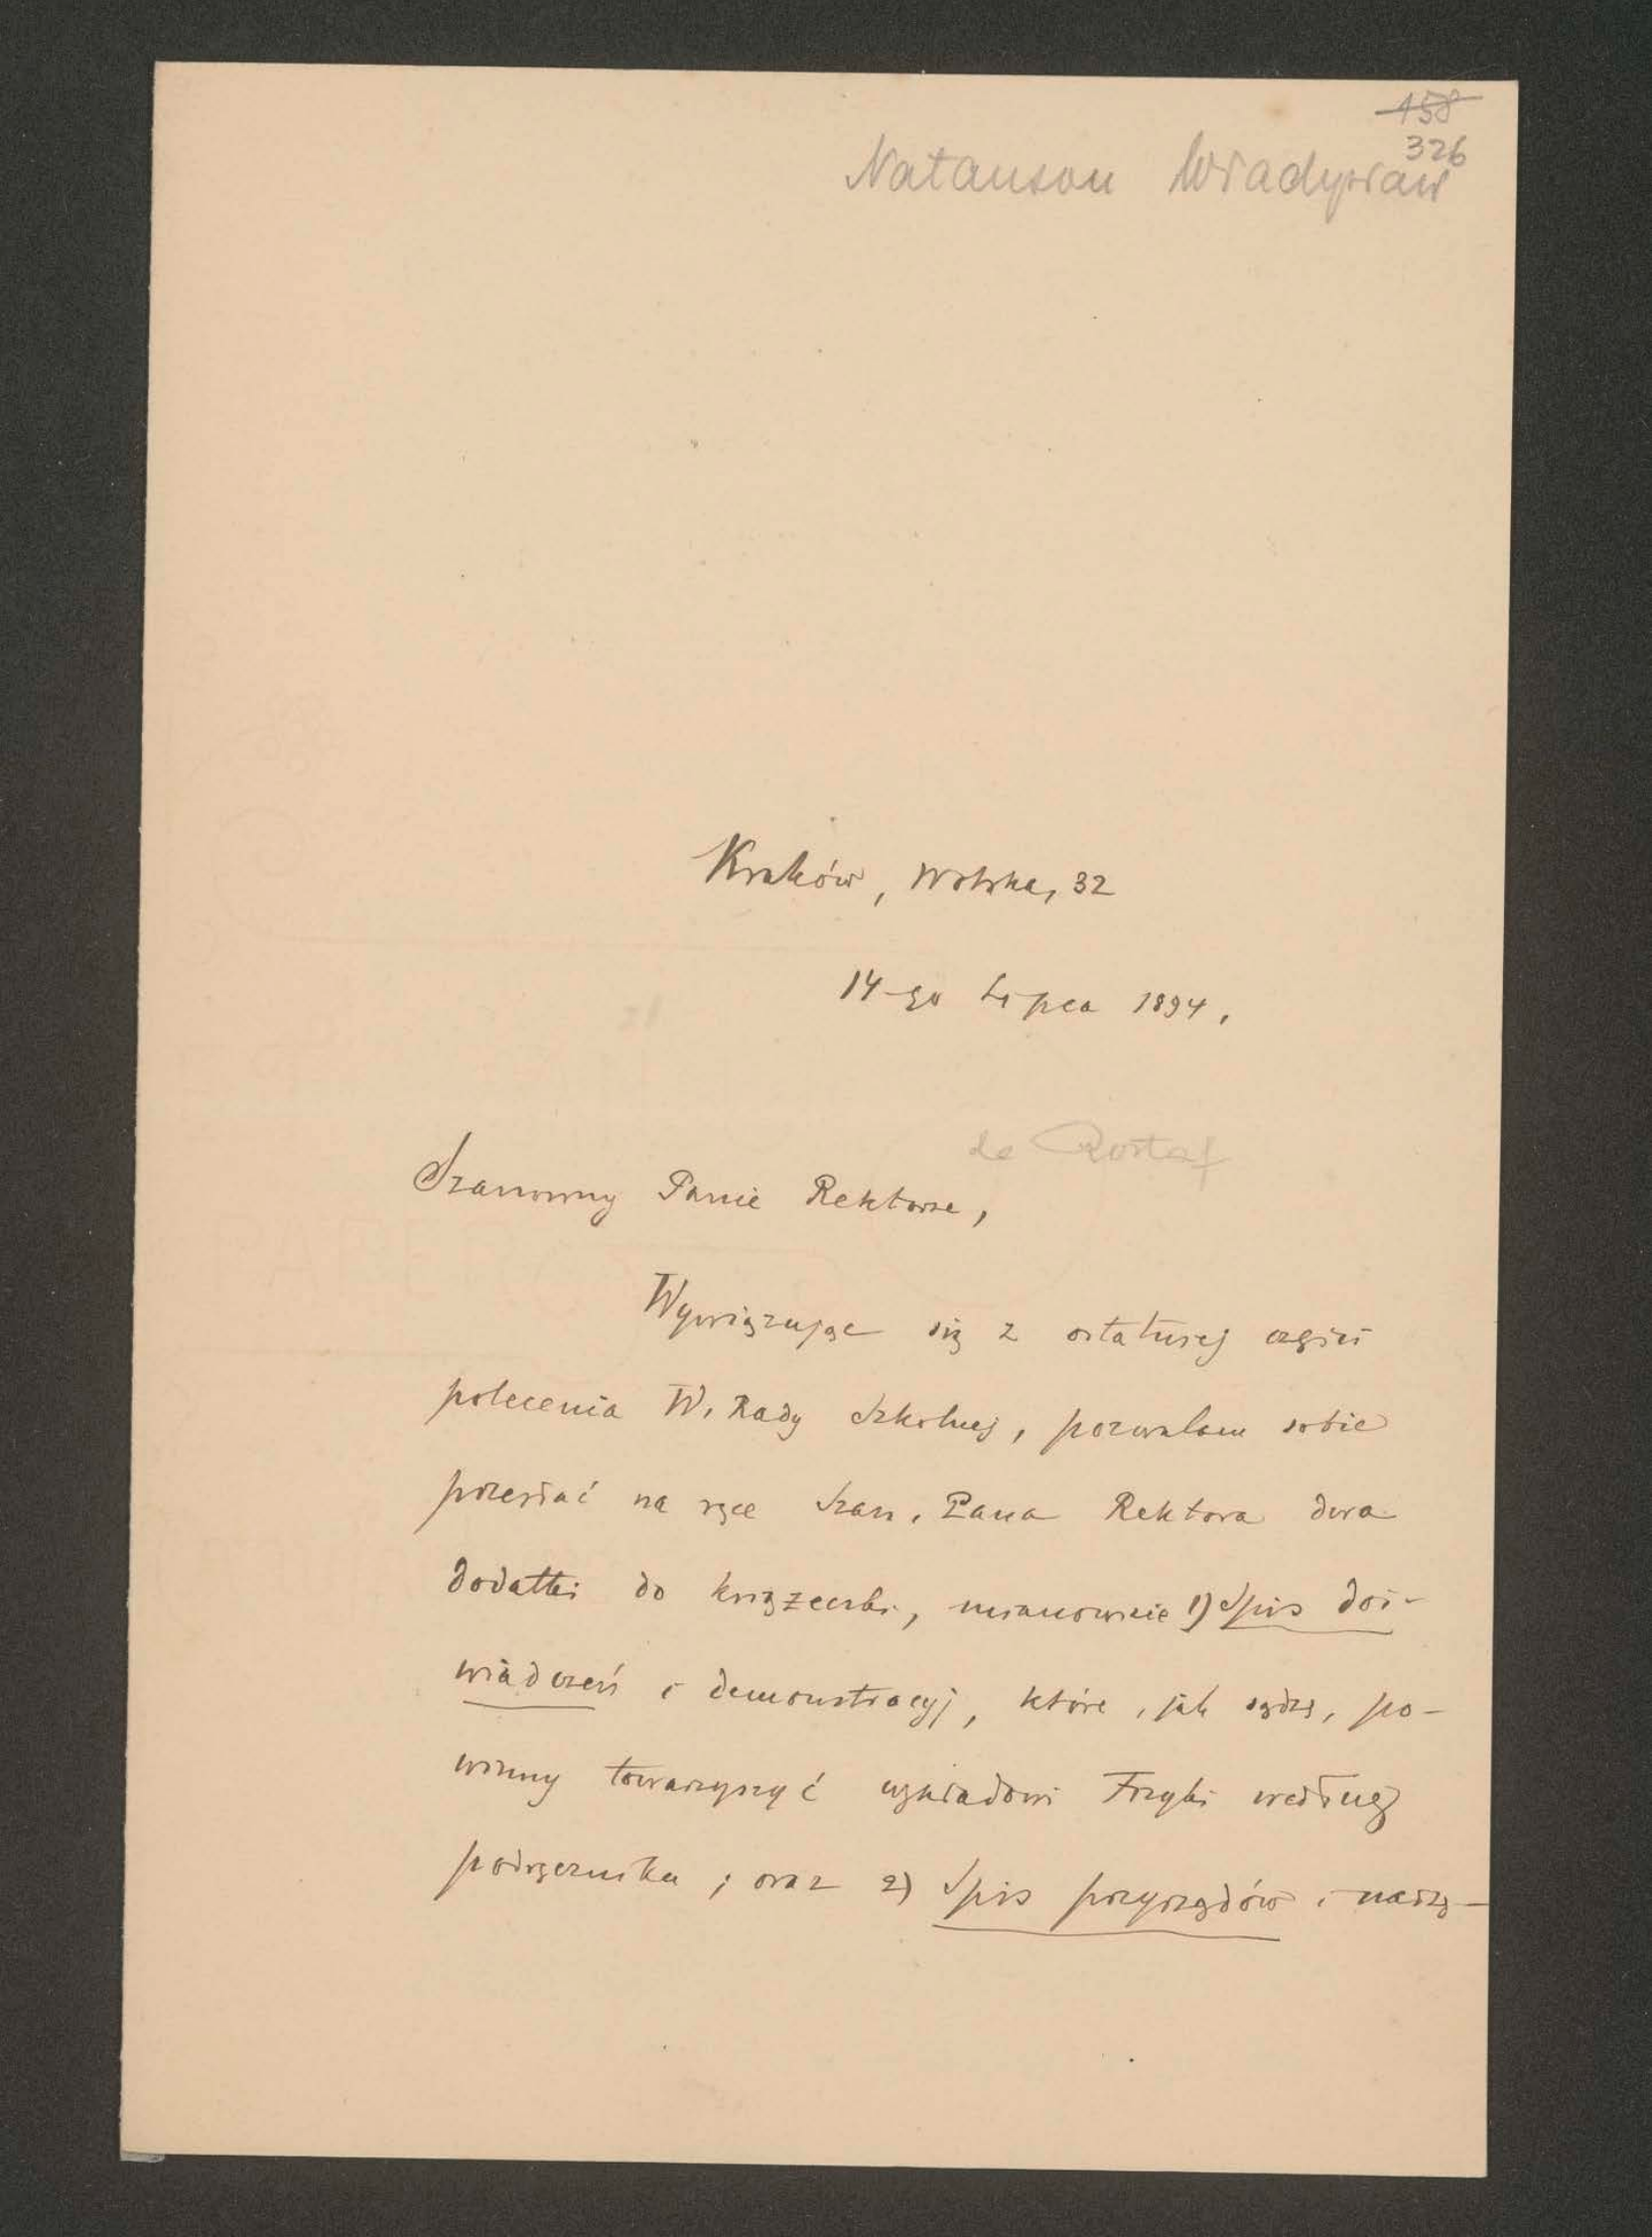 158
326
Natanson Władysław
Kraków, Wolska, 32
14-go Lipca 1894.
do Rostaf
Szanowny Panie Rektorze,
Wywiązując się z ostatniej części
polecenia W. Rady Szkolnej, pozwalam sobie
przesłać na ręce Szan. Pana Rektora dwa
dodatki do książeczki, mianowicie 1) Spis doś-
wiadczeń i demonstracyj, które, jak sądzę, po-
winny towarzyszyć wykładowi Fizyki według
podręcznika; oraz 2) Spis przyrządów i narzę-